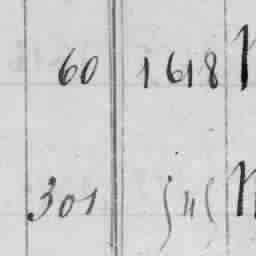 60 1618
301 545